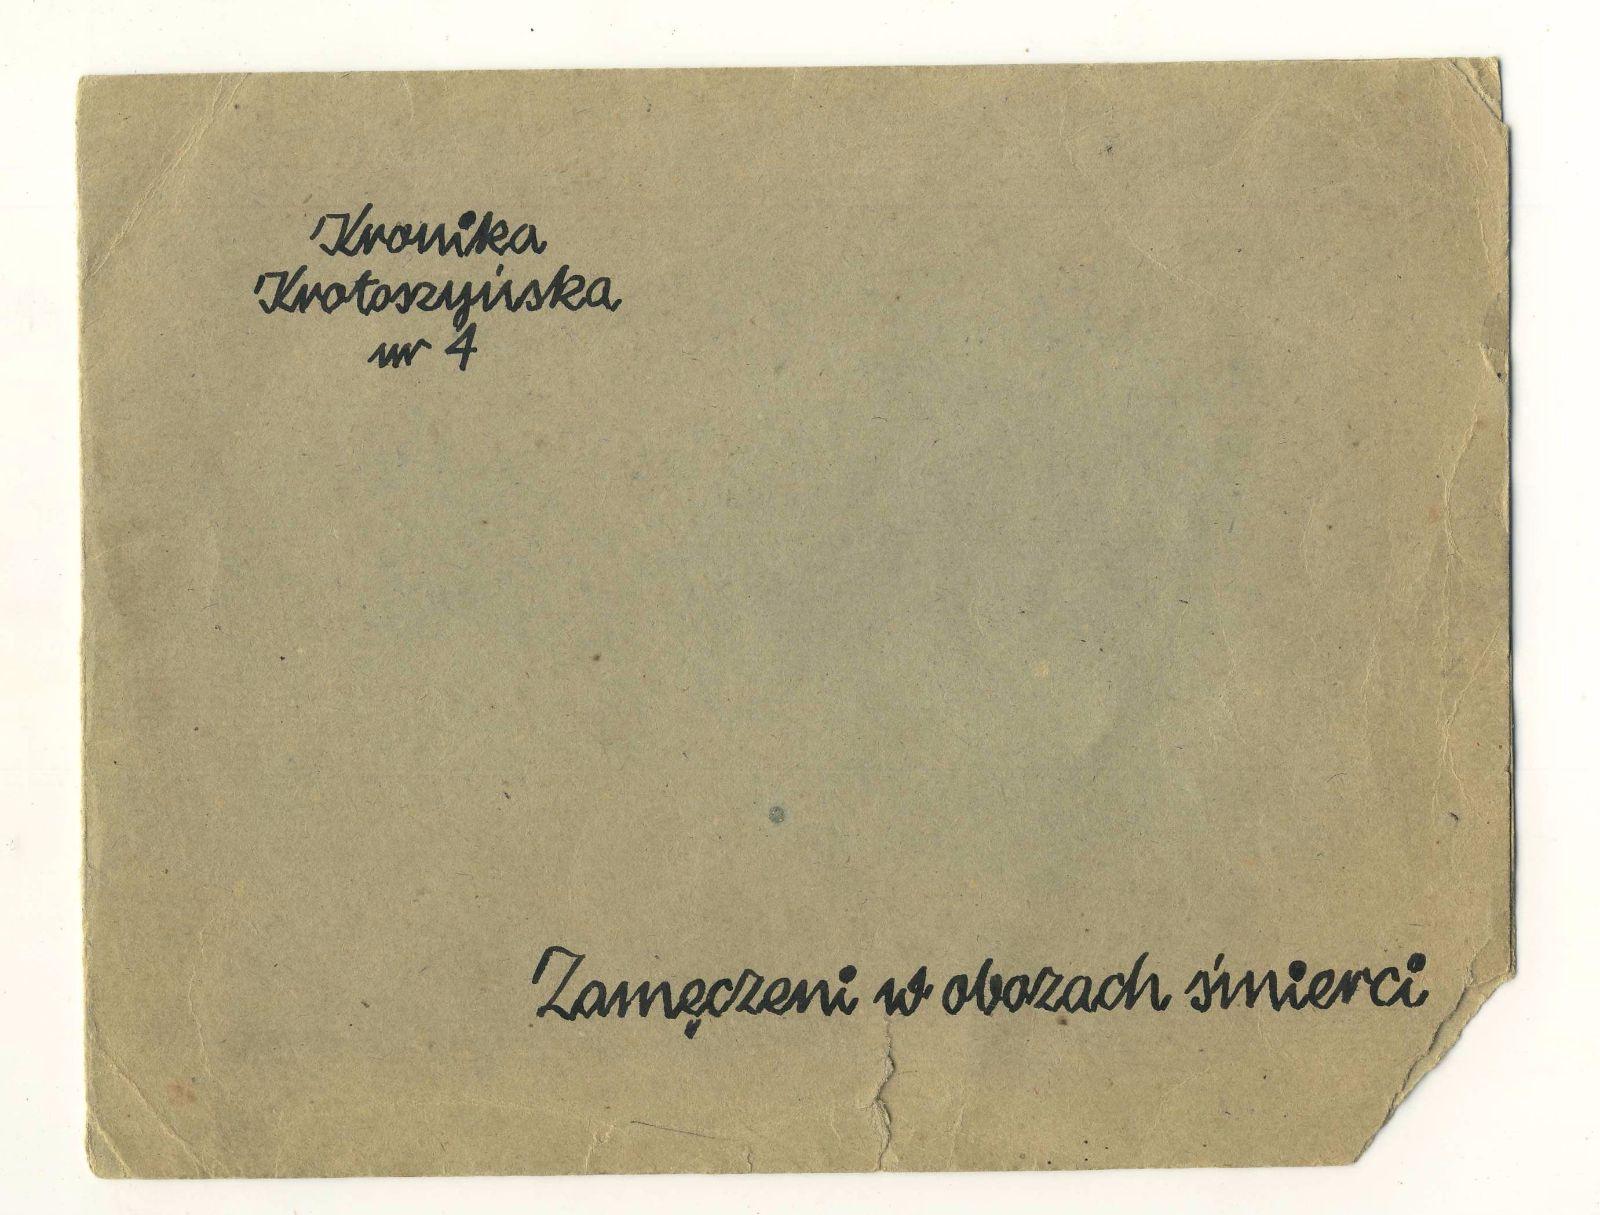 Kronika
Krotoszyńska
nr 4
Zamęczeni w obozach śmierci